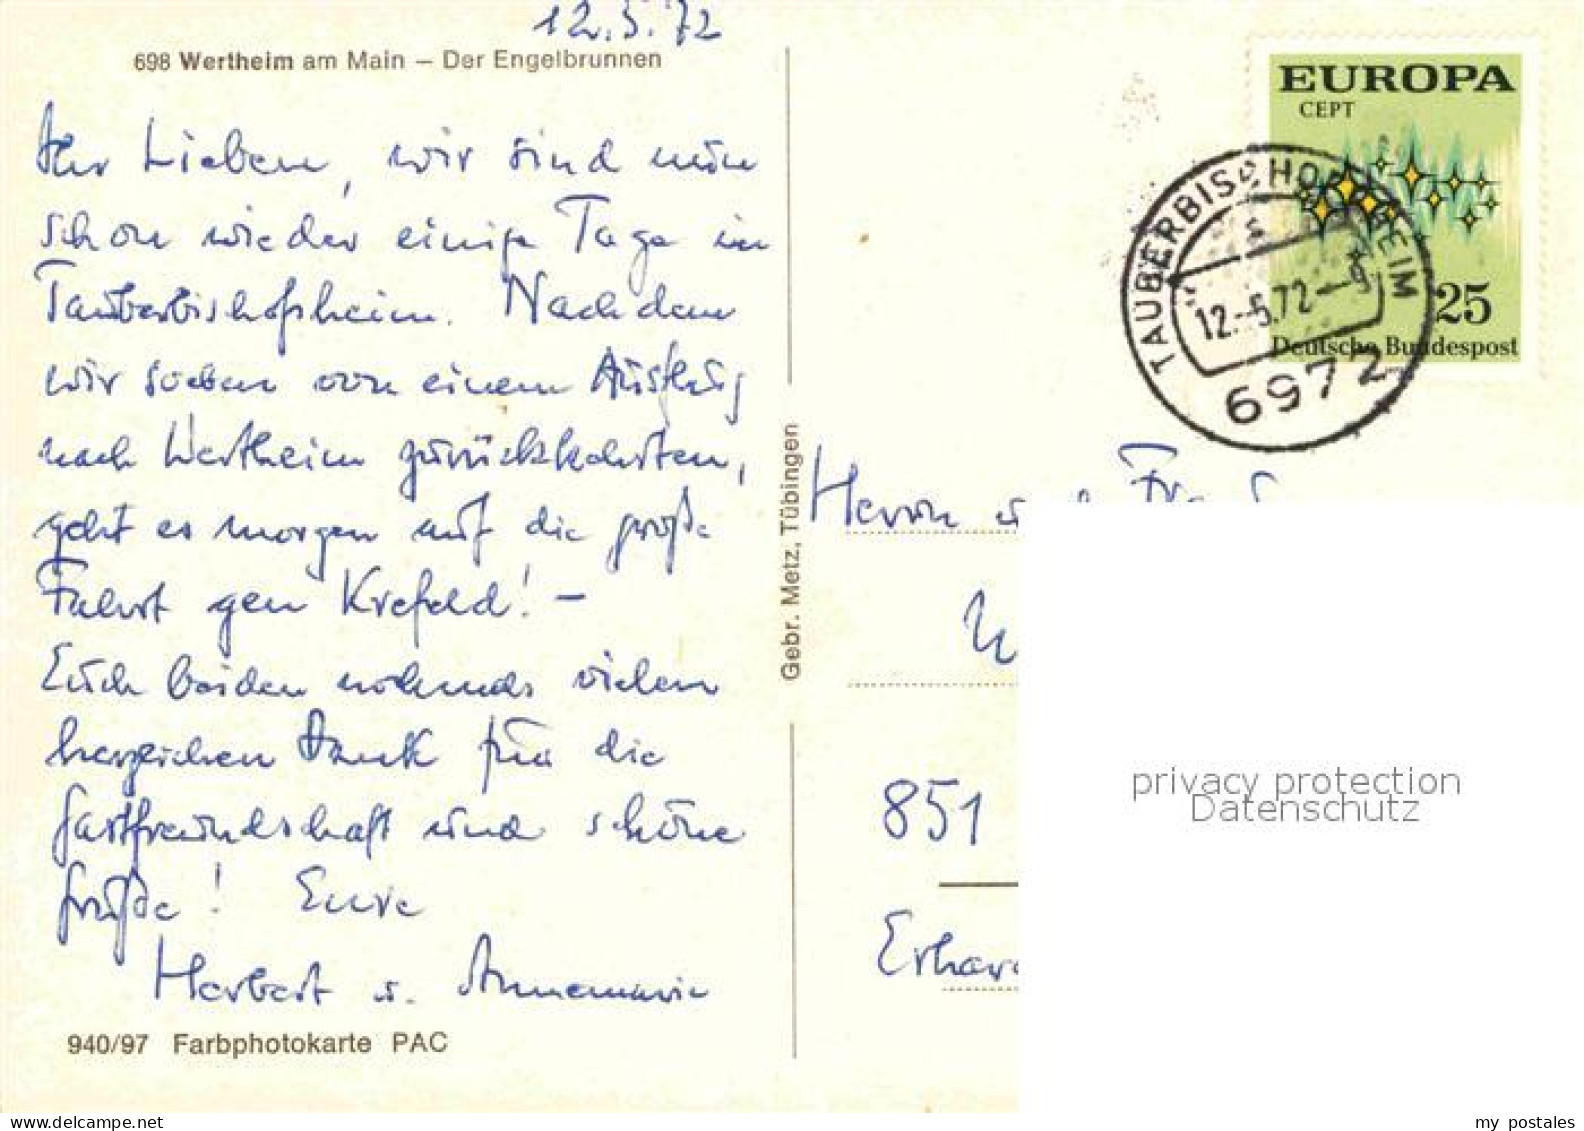 12.5.72
698 Wertheim am Main – Der Engelbrunnen
Ihr Lieben, wir sind nun
schon wieder einige Tage in
Tauberbischofsheim. Nachdem
wir soeben von einem Ausflug
nach Wertheim zurückkehrten,
geht es morgen auf die große
Fahrt gen Krefeld! –
Euch beiden nochmals vielen
herzlichen Dank für die
Gastfreundschaft und schöne
Grüße! Eure
Herbert u. Annemarie
940/97 Farbphotokarte PAC
Gebr. Metz, Tübingen
EUROPA
CEPT
25
Deutsche Bundespost
TAUBERBISCHOFSHEIM
12.-5.72
6972
Herrn u
851
privacy protection
Datenschutz
my postales